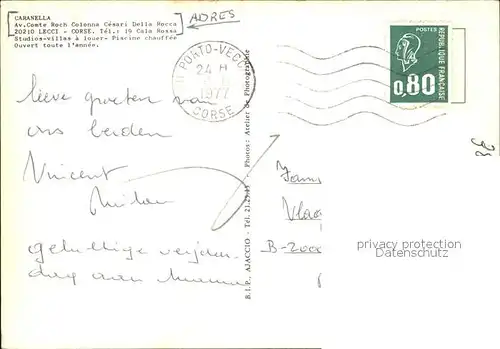 CARANELLA
Av.Comte Roch Colonna Césari Della Rocca
20210 LECCI - CORSE. Tél.: 19 Cala Rossa
Studios-villas à louer- Piscine chauffée
Ouvert toute l'année.
ADRES
PORTO-VECC
24 H
1977
CORSE
POSTES
0,80
REPUBLIQUE FRANÇAISE
lieve groeten van
ons beiden
Vincent
gelukkige verjaar
dag aan
B.I.P., AJACCIO - Tél. 21.25.41 - Photos: Atelier de Photographie
Vlaa
B-2000
privacy protection
Datenschutz